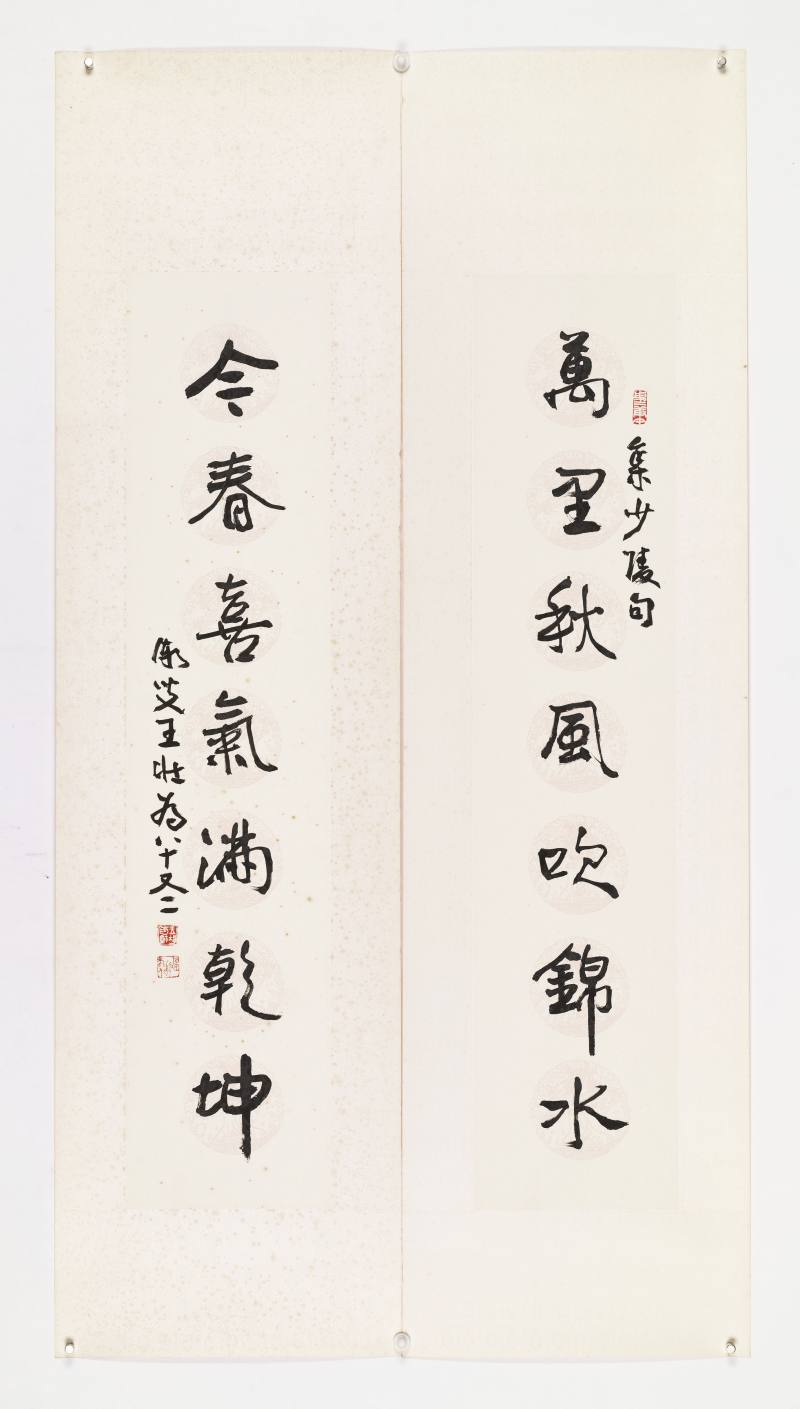 集少陵句
萬里秋風吹錦水
今春喜氣滿乾坤
漸叟王壯為八十又二